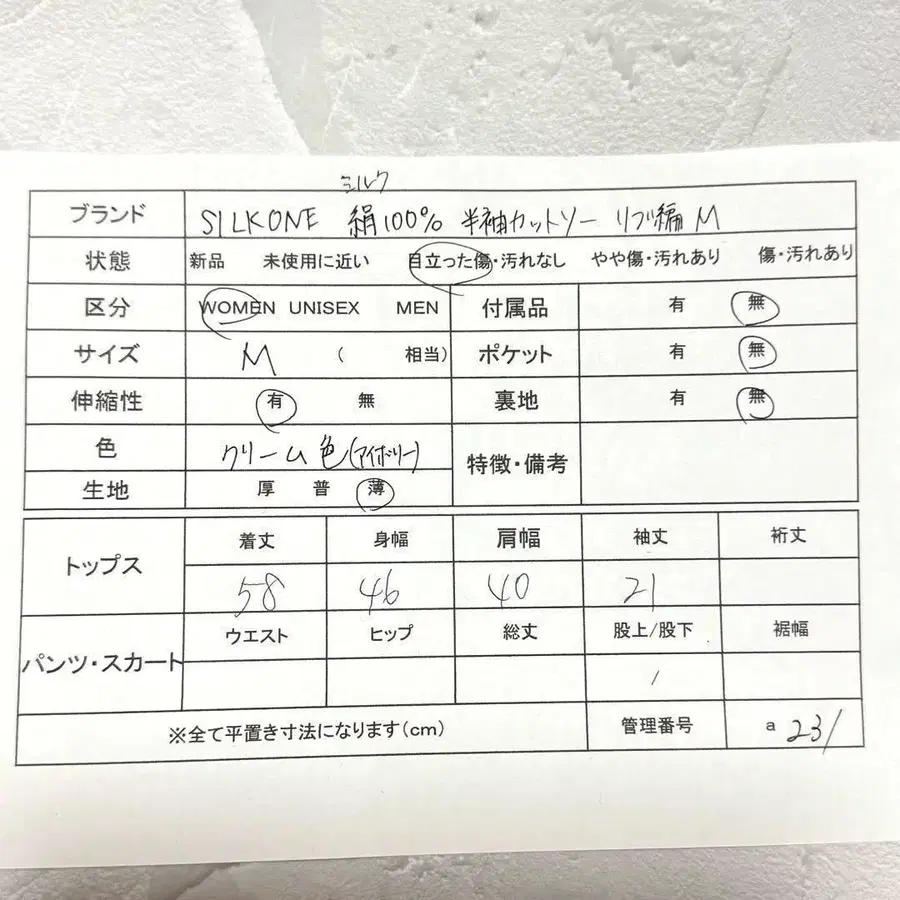 ミルク
ブランド SILKONE 絹100% 半袖カットソー リブ編 M
状態 新品 未使用に近い 目立った傷・汚れなし やや傷・汚れあり 傷・汚れあり
区分 WOMEN UNISEX MEN 付属品 有 無
サイズ M ( 相当) ポケット 有 無
伸縮性 有 無 裏地 有 無
色 クリーム色(アイボリー) 特徴・備考
生地 厚 普 薄
トップス 着丈 身幅 肩幅 袖丈 裄丈
58 46 40 21
パンツ・スカート ウエスト ヒップ 総丈 股上/股下 裾幅
/
※全て平置き寸法になります(cm) 管理番号 a 231